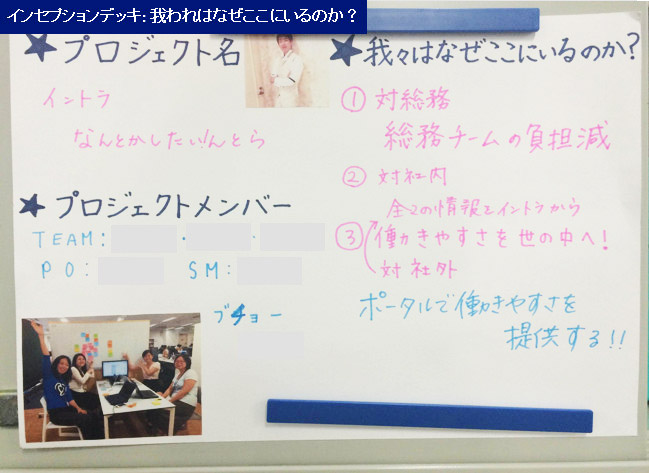 インセプションデッキ: 我われはなぜここにいるのか？
★プロジェクト名
イントラ
なんとかしたい!んとら
★プロジェクトメンバー
TEAM: ・ ・
PO: SM:
ブチョー
★我々はなぜここにいるのか?
① 対総務
総務チームの負担減
② 対社内
全ての情報をイントラから
③ 働きやすさを世の中へ!
対社外
ポータルで働きやすさを
提供する!!